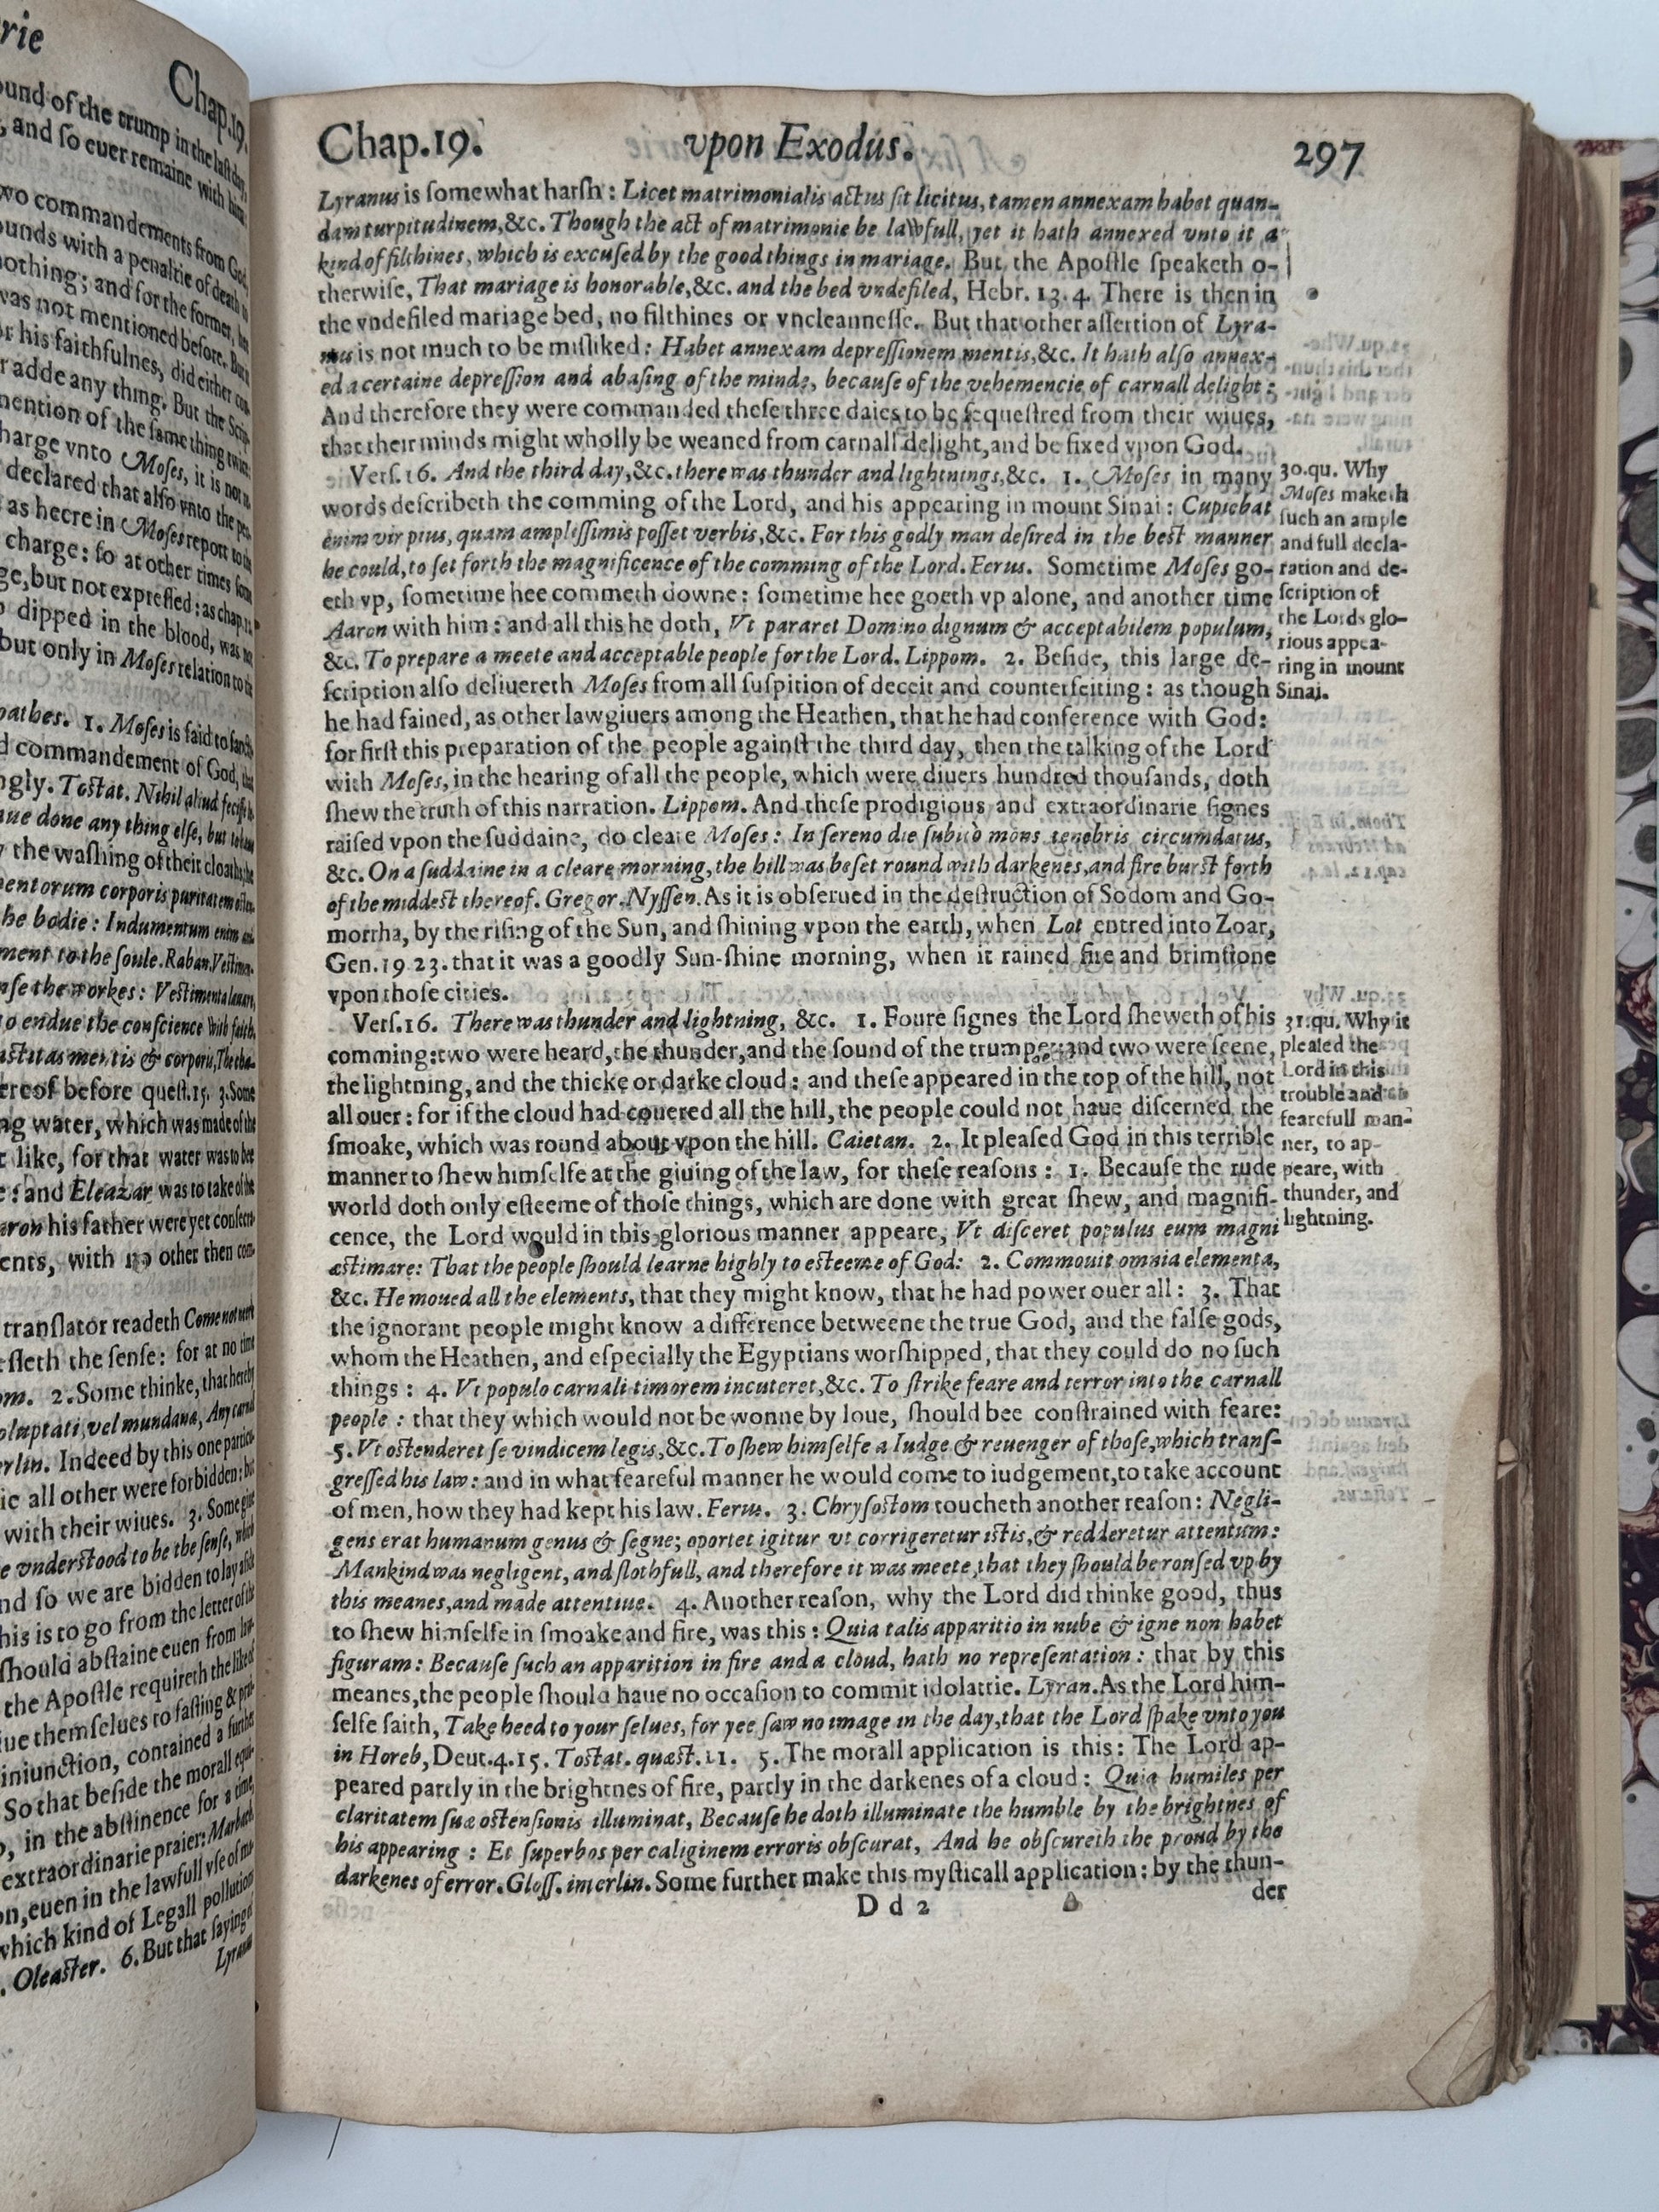 rie
Chap.19.
ound of the trump in the last day,
, and so euer remaine with him.
wo commandements from God,
ounds with a penaltie of death
nothing; and for the former,
was not mentioned before. But
or his faithfulnes, did either
r adde any thing. But the
mention of the same thing twice:
harge vnto Moses, it is not
declared that also vnto the
as heere in Moses report to the
charge: so at other times
ge, but not expressed: as chap.
dipped in the blood, was not
but only in Moses relation to
oathes. 1. Moses is said to
d commandement of God,
ngly. Tostat. Nihil aliud
aue done any thing else, but
y the washing of their cloaths,
mentorum corporis puritatem
he bodie: Indumentum enim
ment to the soule. Raban. Vestimen-
nse the workes: Vestimenta lauare,
to endue the conscience with faith,
astitas mentis & corporis, The
ereof before quest.15. 3. Some
ng water, which was made of the
t like, for that water was to bee
e: and Eleazar was to take of the
aron his father were yet
ents, with no other then com-
translator readeth Come not neere
sseth the sense: for at no time
om. 2. Some thinke, that hereby
oluptati, vel mundana, Any carnall
erlin. Indeed by this one
ic all other were forbidden: but
with their wiues. 3. Some giue
e vnderstood to be the sense, which
nd so we are bidden to lay aside
his is to go from the letter of the
should abstaine euen from
the Apostle requireth the like of
iue themselues to fasting &
iniunction, contained a further
So that beside the morall
o, in the abstinence for a time,
extraordinarie praier: Marbach.
on, euen in the lawfull vse of
which kind of Legall pollution
. Oleaster. 6. But that saying of
Lyranus
Chap.19. vpon Exodus. 297
Lyranus is somewhat harsh: Licet matrimonialis actus sit licitus, tamen annexam habet quan-
dam turpitudinem, &c. Though the act of matrimonie be lawfull, yet it hath annexed vnto it a
kind of filthines, which is excused by the good things in mariage. But the Apostle speaketh o-
therwise, That mariage is honorable, &c. and the bed vndefiled, Hebr. 13.4. There is then in
the vndefiled mariage bed, no filthines or vncleannesse. But that other assertion of Lyra-
nus is not much to be misliked: Habet annexam depressionem mentis, &c. It hath also annex-
ed a certaine depression and abasing of the minde, because of the vehemencie of carnall delight:
And therefore they were commanded these three daies to be sequestred from their wiues,
that their minds might wholly be weaned from carnall delight, and be fixed vpon God.
Vers.16. And the third day, &c. there was thunder and lightnings, &c. 1. Moses in many
words describeth the comming of the Lord, and his appearing in mount Sinai: Cupiebat
enim vir pius, quam amplissimis posset verbis, &c. For this godly man desired in the best manner
he could, to set forth the magnificence of the comming of the Lord. Ferus. Sometime Moses go-
eth vp, sometime hee commeth downe: sometime hee goeth vp alone, and another time
Aaron with him: and all this he doth, Vt pararet Domino dignum & acceptabilem populum,
&c. To prepare a meete and acceptable people for the Lord. Lippom. 2. Beside, this large de-
scription also deliuereth Moses from all suspition of deceit and counterfeiting: as though
he had fained, as other lawgiuers among the Heathen, that he had conference with God:
for first this preparation of the people against the third day, then the talking of the Lord
with Moses, in the hearing of all the people, which were diuers hundred thousands, doth
shew the truth of this narration. Lippom. And these prodigious and extraordinarie signes
raised vpon the suddaine, do cleare Moses: In sereno die subito mons tenebris circumdatus,
&c. On a suddaine in a cleare morning, the hill was beset round with darkenes, and fire burst forth
of the middest thereof. Gregor. Nyssen. As it is obserued in the destruction of Sodom and Go-
morrha, by the rising of the Sun, and shining vpon the earth, when Lot entred into Zoar,
Gen.19 23. that it was a goodly Sun-shine morning, when it rained fire and brimstone
vpon those cities.
30.qu. Why
Moses maketh
such an ample
and full decla-
ration and de-
scription of
the Lords glo-
rious appea-
ring in mount
Sinai.
Vers.16. There was thunder and lightning, &c. 1. Foure signes the Lord sheweth of his
comming: two were heard, the thunder, and the sound of the trumpet: and two were seene,
the lightning, and the thicke or darke cloud: and these appeared in the top of the hill, not
all ouer: for if the cloud had couered all the hill, the people could not haue discerned the
smoake, which was round about vpon the hill. Caietan. 2. It pleased God in this terrible
manner to shew himselfe at the giuing of the law, for these reasons: 1. Because the rude
world doth only esteeme of those things, which are done with great shew, and magnifi-
cence, the Lord would in this glorious manner appeare, Vt disceret populus eum magni
æstimare: That the people should learne highly to esteeme of God: 2. Commouit omnia elementa,
&c. He moued all the elements, that they might know, that he had power ouer all: 3. That
the ignorant people might know a difference betweene the true God, and the false gods,
whom the Heathen, and especially the Egyptians worshipped, that they could do no such
things: 4. Vt populo carnali timorem incuteret, &c. To strike feare and terror into the carnall
people: that they which would not be wonne by loue, should bee constrained with feare:
5. Vt ostenderet se vindicem legis, &c. To shew himselfe a Iudge & reuenger of those, which trans-
gressed his law: and in what feareful manner he would come to iudgement, to take account
of men, how they had kept his law. Ferus. 3. Chrysostom toucheth another reason: Negli-
gens erat humanum genus & segne; oportet igitur vt corrigeretur istis, & redderetur attentum:
Mankind was negligent, and slothfull, and therefore it was meete, that they should be roused vp by
this meanes, and made attentiue. 4. Another reason, why the Lord did thinke good, thus
to shew himselfe in smoake and fire, was this: Quia talis apparitio in nube & igne non habet
figuram: Because such an apparition in fire and a cloud, hath no representation: that by this
meanes, the people should haue no occasion to commit idolatrie. Lyran. As the Lord him-
selfe saith, Take heed to your selues, for yee saw no image in the day, that the Lord spake vnto you
in Horeb, Deut.4.15. Tostat. quæst.11. 5. The morall application is this: The Lord ap-
peared partly in the brightnes of fire, partly in the darkenes of a cloud: Quia humiles per
claritatem suæ ostensionis illuminat, Because he doth illuminate the humble by the brightnes of
his appearing: Et superbos per caliginem erroris obscurat, And he obscureth the proud by the
darkenes of error. Gloss. interlin. Some further make this mysticall application: by the thun-
31.qu. Why it
pleased the
Lord in this
trouble and
fearefull man-
ner, to ap-
peare, with
thunder, and
lightning.
Dd2
der